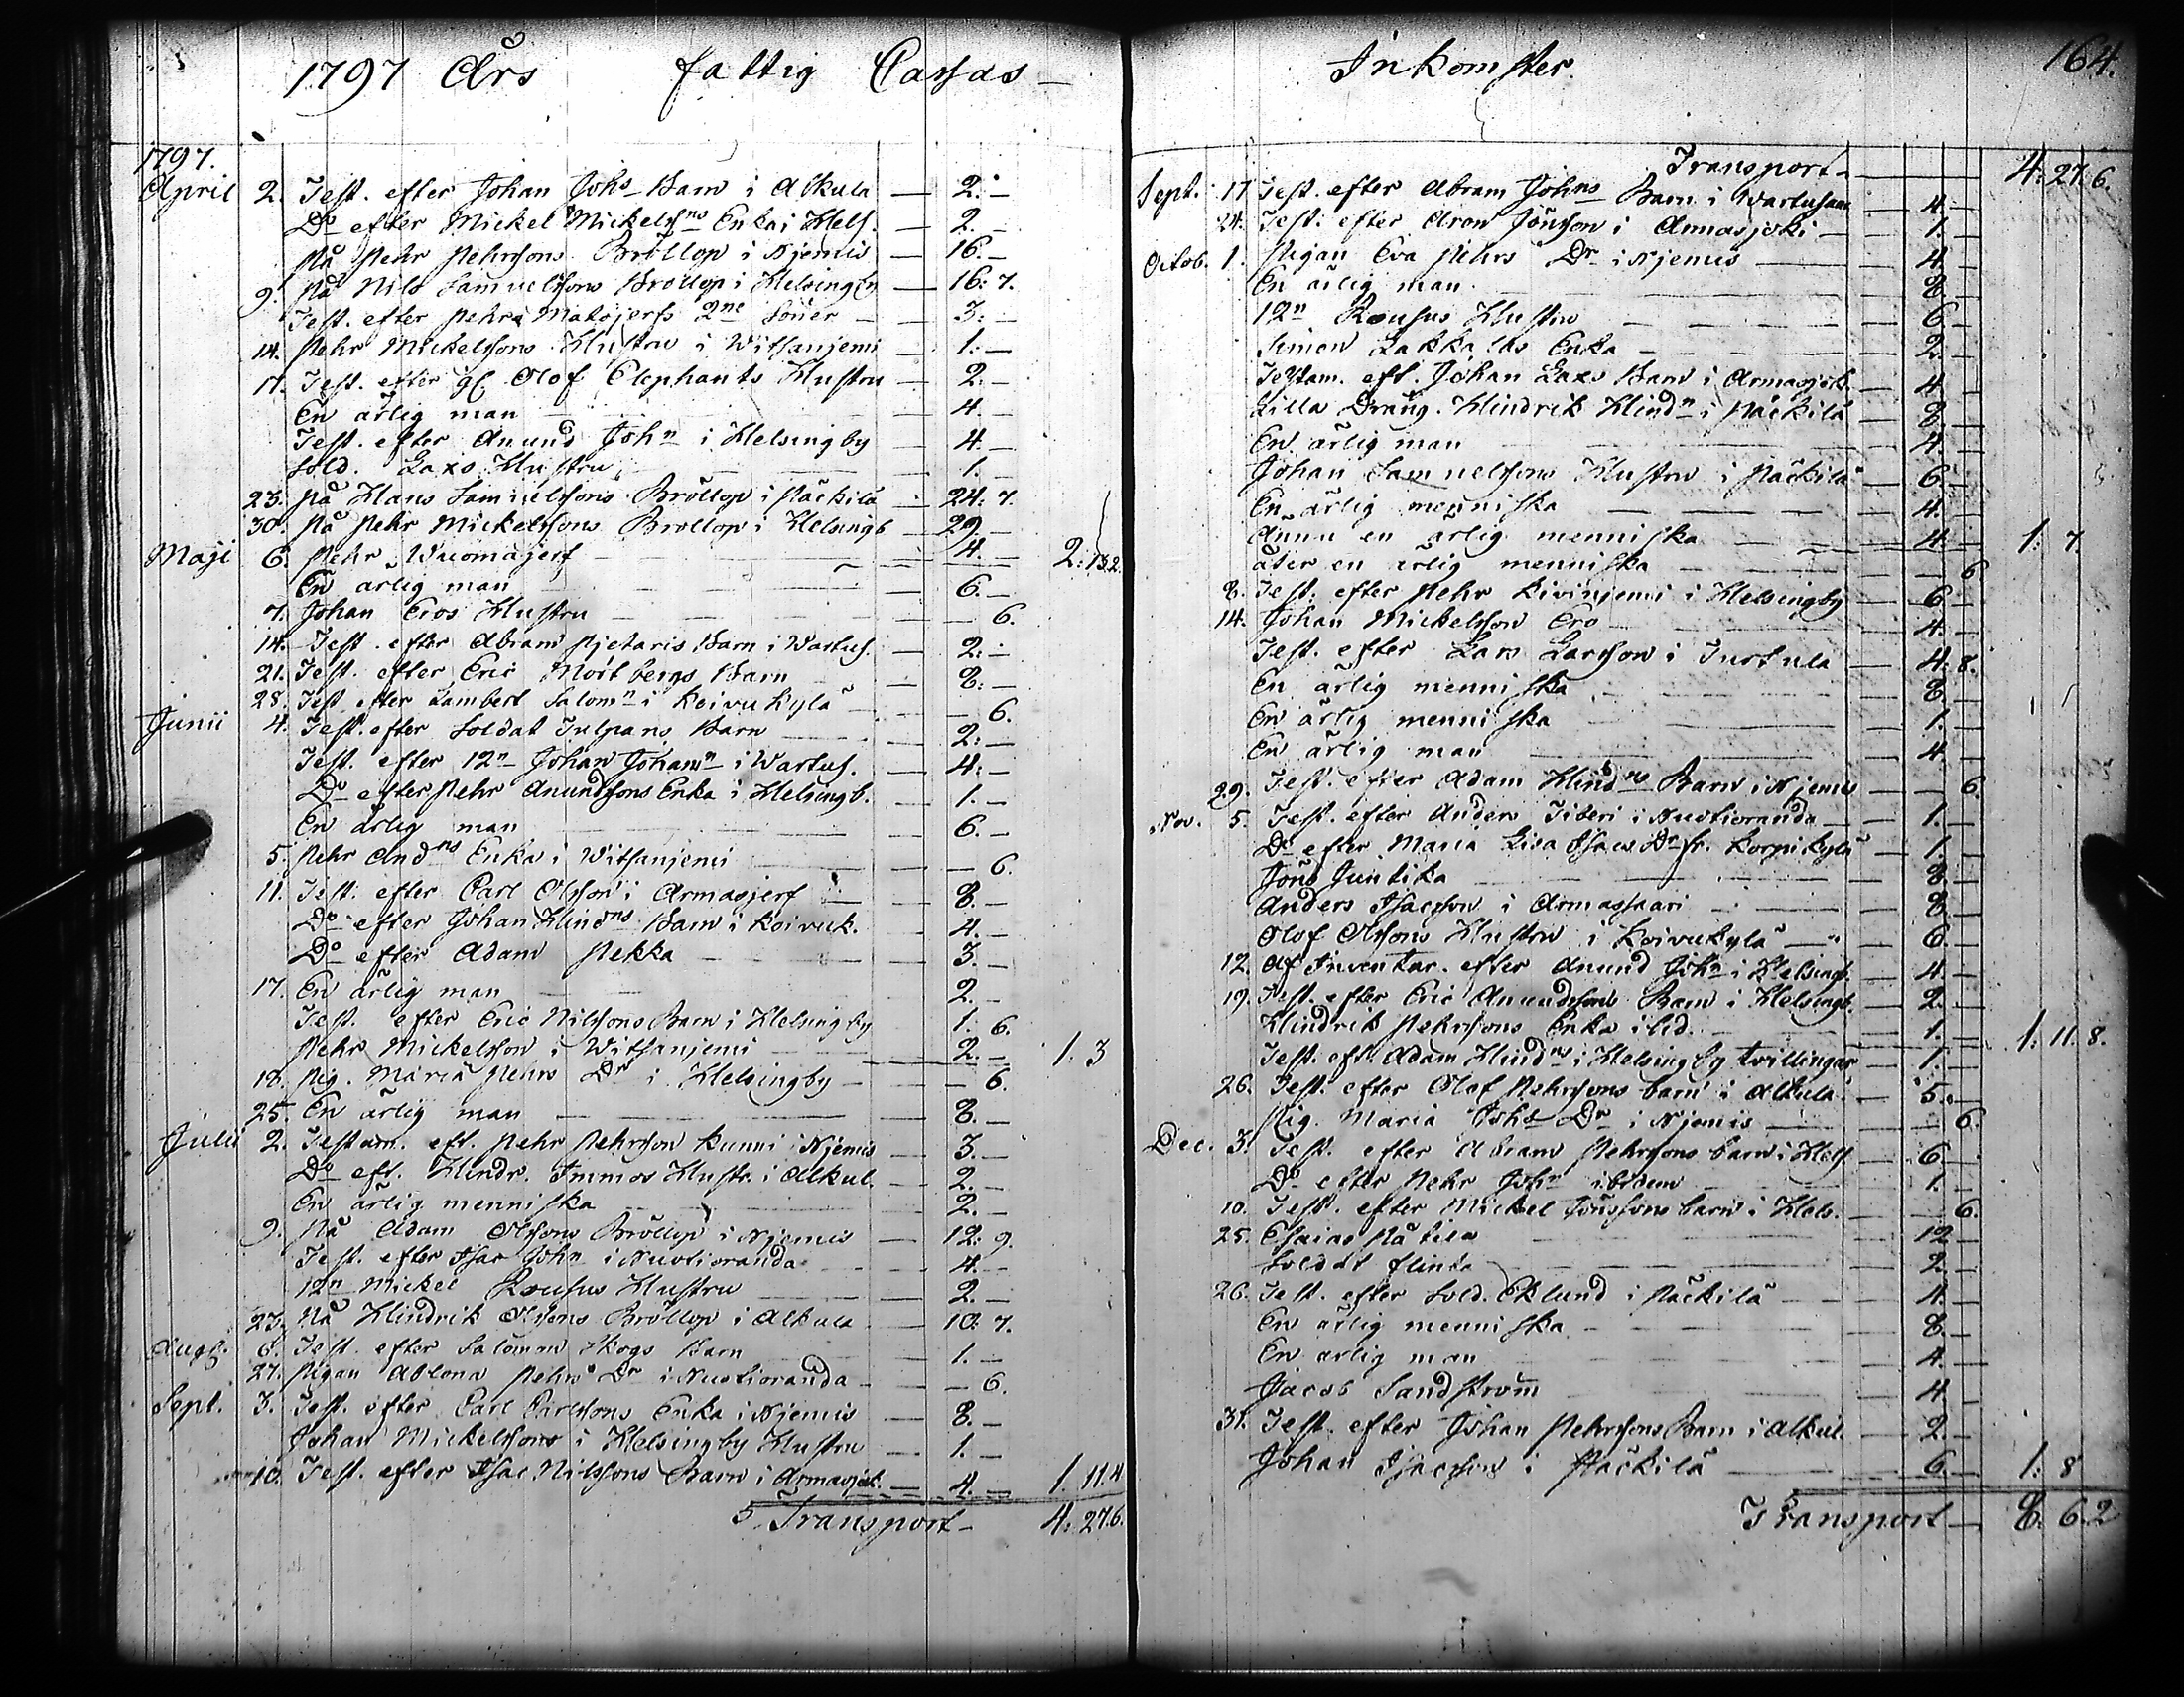 1797 Års fattig Cassas —
1797.
April 2. Test. efter Johan Johs Barn i Alkula — 2. —
Do efter Mickel Mickelssns Enka i Hels. — 2. —
På Pehr Pehrssons Bröllop i Njemis — 16. —
9. På Nils Samuelssons Bröllop i Helsingby — 16: 7.
Test. efter Pehr Matojerfs 2ne Söner — 3: —
14. Pehr Mickelssons Hustru i Witsanjemi — 1: —
17. Test. efter gl. Olof Elephants Hustru — 2: —
En ärlig man — 4. —
Test. efter Anund John i Helsingby — 4. —
Sold. Laxs Hustru — 1. —
23. På Hans Samuelssons Bröllop i Päckilä — 24: 7.
30. På Pehr Mickelssons Bröllop i Helsingb — 29. —
Maji 6. Pehr Wuomajerf — 4. — 2: 13.2.
En ärlig man — 6. —
7. Johan Eros Hustru — — 6.
14. Test. efter Abram Pjetaris Barn i Wartus. — 2: —
21. Test. efter Eric Mörtbergs Barn — 8: —
28. Test. efter Lambert Salomn i Koivukylä — — 6.
Junii 4. Test. efter Soldat Tulpans Barn — 2: —
Test. efter 12n Johan Johansn i Wartus. — 4: —
Do efter Pehr Anundssons Enka i Helsingb. — 1. —
En ärlig man — 6. —
5. Pehr Andns Enka i Witsanjemi — — 6.
11. Test. efter Carl Olsson i Armasjerf — 8. —
Do efter Johan Hindns Barn i Koivuk. — 4. —
Do efter Adam Pekka — 3. —
17. En ärlig man — 2. —
Test. efter Eric Nilssons Barn i Helsingby 1. 6.
Pehr Mickelsson i Witsanjemi — 2. — 1. 3
18. Pig. Maria Pehrs Dr i Helsingby — — 6.
25. En ärlig man — 8. —
Julii 2. Testam. eft. Pehr Pehrsson Kunni i Njemis — 3. —
Do eft. Hindr. Immos Hustr. i Alkul. — 2. —
En ärlig menniska — 2. —
9. På Adam Olssons Bröllop i Njemis — 12: 9.
Test. efter Isac John i Nuotioranda — 4. —
12n Mickel Rousus Hustru — 2. —
23. På Hindrik Olssons Bröllop i Alkula — 10: 7.
Augs. 6. Test. efter Salomon Skogs Barn — 1. —
27. Pigan Ablona Pehrs Dr i Nuotioranda — — 6.
Sept. 3. Test. efter Carl Carlssons Enka i Njemis — 8. —
Johan Mickelssons i Helsingby Hustru — 1. —
10. Test. efter Isac Nilssons Barn i Armasjok. — 4. — 1. 11.4
Transport — 4: 27.6.
Inkomster. 164.
Transport — 4: 27.6.
Sept. 17 Test. efter Abram Johns Barn i Wartusaar — 4. —
24. Test. efter Aron Jönsson i Armasjoki — 1. —
Octob. 1. Pigan Eva Pehrs Dr i Njemis — 4. —
En ärlig man — 8. —
12n Rousus Hustru — 6. —
Simon Lakkalas Enka — 2. —
Testam. eft. Johan Laxs Barn i Armasjok. — 4. —
Lilla Dräng. Hindrik Hindn i Päckilä — 8. —
En ärlig man — 4. —
Johan Samuelssons Hustru i Päckilä — 6. —
En ärlig menniska — 4. —
Ännu en ärlig menniska — 4. — 1: 7.
åter en ärlig menniska — — 6
8. Test. efter Pehr Kivinjemi i Helsingby — 6 —
14. Johan Mickelsson Ero — 4. —
Test. efter Lars Larsson i Turtula — 4: 8.
En ärlig menniska — 8. —
En ärlig menniska — 1. —
En ärlig man — 4. —
29. Test. efter Adam Hindns Barn i Njemis — — 6.
Nov. 5. Test. efter Anders Tiberi i Nuotioranda — 1. —
Do efter Maria Lisa Isacs Dr fr. Korpikylä — 1. —
Jöns Juntika — 8. —
Anders Isacsson i Armassaari — 8. —
Olof Olssons Hustru i Koivukylä — 6. —
12. Af Inventar. efter Anund John i Helsingb. — 4. —
19. Test. efter Eric Anundssons Barn i Helsingb. — 2. —
Hindrik Pehrssons Enka ibid. — 1. — 1: 11. 8.
Test. eft. Adam Hindns i Helsingby tvillingar — 1. —
26. Test. efter Olof Pehrssons barn i Alkula — 5. —
Pig. Maria Johs Dr i Njemis — — 6.
Dec. 3. Test. efter Abram Pehrssons barn i Hels — 6. —
Do efter Pehr John ibidem — 1. —
10. Test. efter Mickel Jönssons barn i Hels. — — 6.
25. Esaias Pätila — 12 —
Soldat Flinta — 2. —
26. Test. efter Sold. Eklund i Päckilä — 4. —
En ärlig menniska — 8. —
En ärlig man — 4. —
Jacob Sandström — 4. —
31. Test. efter Johan Pehrssons Barn i Alkul. — 2. —
Johan Isacsson i Päckilä — 6. — 1: 8
Transport — 8. 6.2